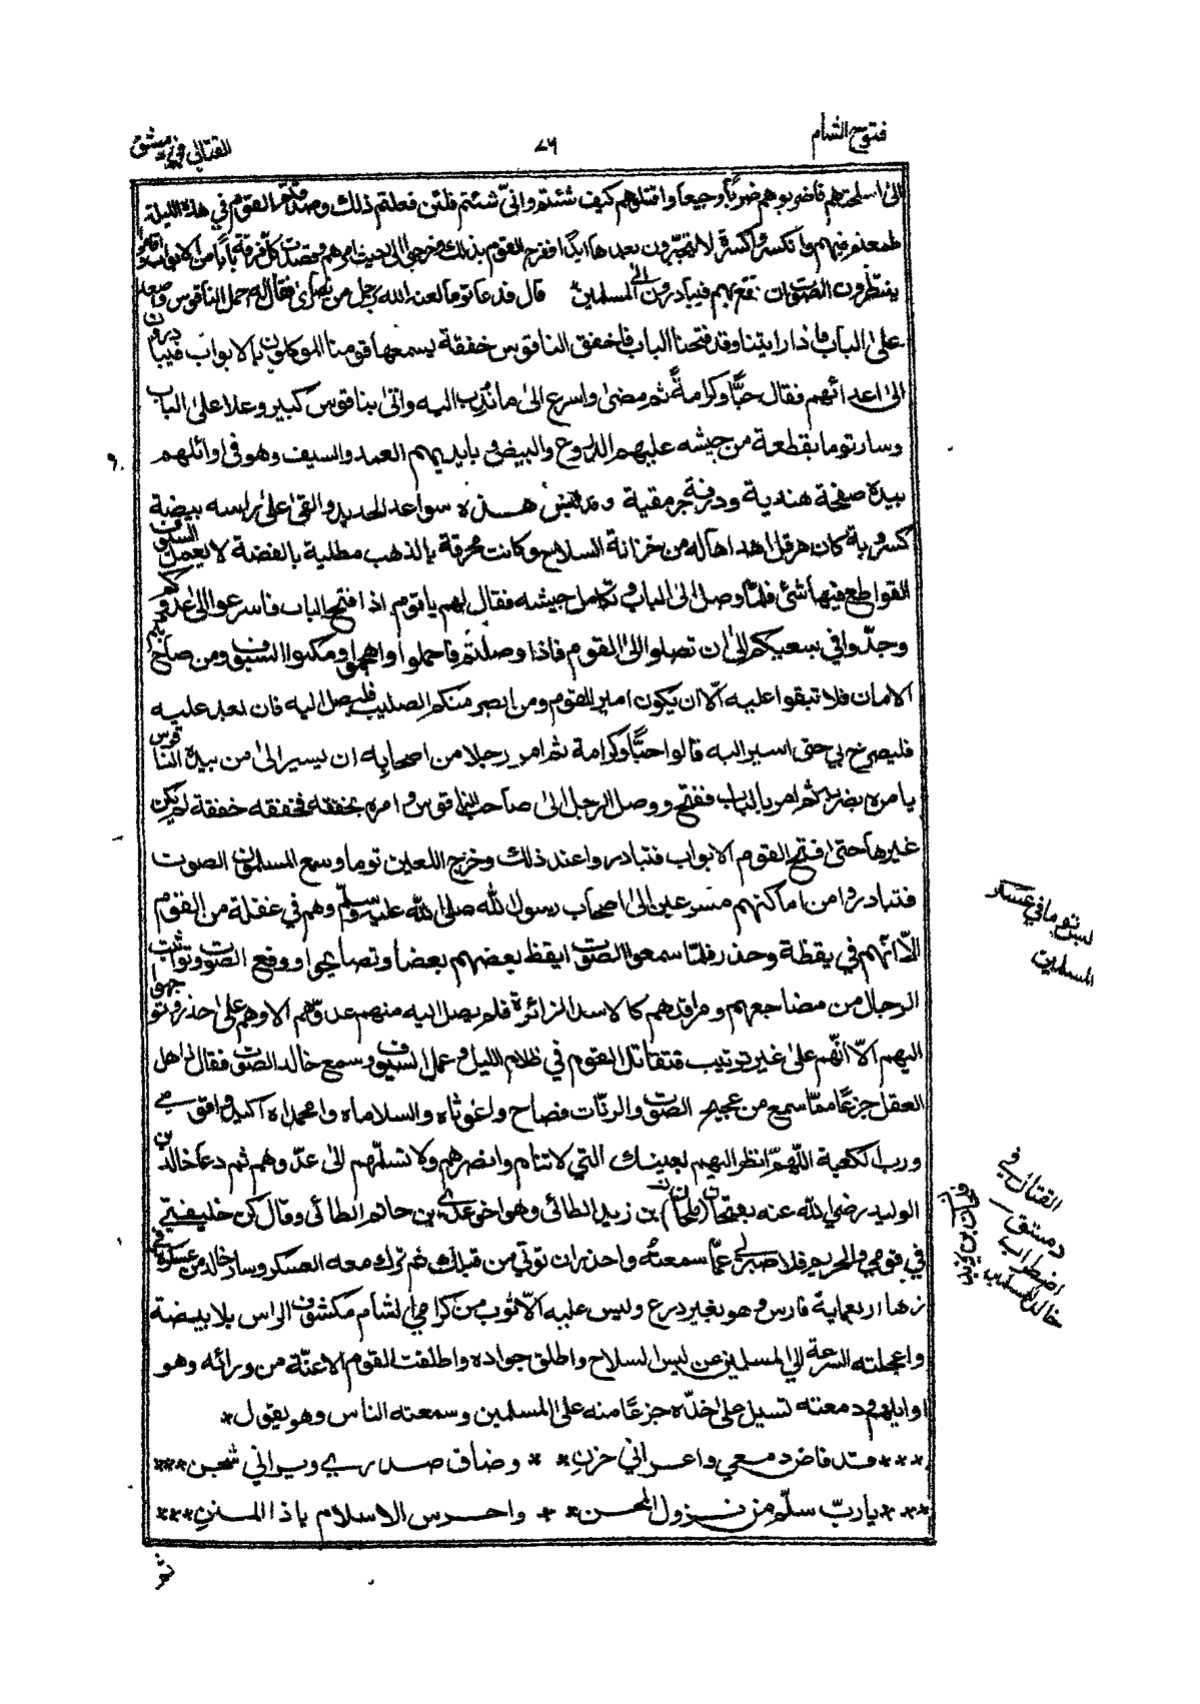 فتوح الشام
٧٦
القتال في دمشق
الى اسلحتهم فاضربوهم ضربًا وجيعا واقتلوهم كيف شئتم وانّي شئتم فلئن فعلتم ذلك وصدمتم القوم في هذه الليلة
طمعتم فيهم وانكسروا كسرة لا ينجبرون بعدها ابدًا ففرح القوم بذلك وخرجوا الى حيث امرهم وقصدت كل فرقة بابًا من الابواب واقاموا
ينتظرون الصوت ان يقع بهم فيبادرون الى المسلمين قال فدعا توما لعنه الله برجل من نصارى فقال له احمل الناقوس واصعد
على الباب فاذا رايتنا وقد فتحنا الباب فاخفق الناقوس خفقة يسمعها قومنا الموكلون بالابواب فيبادرون
الى اعدائهم فقال حبًّا وكرامةً ثم مضى واسرع الى ما ندب اليه واتى بناقوس كبير وعلا على الباب
وسار توما بقطعة من جيشه عليهم الدروع والبيض وبايديهم العمد والسيف وهو في اوائلهم
بيده صفحة هندية ودرقة جرمقية وقد لبس هذه سواعد الحديد والقى على راسه بيضة
كسروية كان هرقل اهداها له من خزانة السلاح وكانت محرقة بالذهب مطلية بالفضة لا يعمل السيوف
القواطع فيها شئ فلمّا وصل الى الباب وتكامل جيشه فقال لهم يا قوم اذا فتح الباب فاسرعوا الى عدوكم
وجدّوا في سعيكم الى ان تصلوا الى القوم فاذا وصلتم فاحملوا واهجموا ومكنوا السيوف فيهم ومن صاح
الامان فلا تبقوا عليه الّا ان يكون امير القوم ومن ابصر منكم الصليب فليصل اليه فان بعد عليه
فليصرخ بي حتى اسير اليه قالوا حبًّا وكرامة ثم امر رجلا من اصحابه ان يسير الى من بيده الناقوس
يامره بضربه ثم امر بالباب ففتح ووصل الرجل الى صاحب الناقوس وامره بخفقه فخفقه خفقة لم يكن
غيرها حتى افتح القوم الابواب فتبادروا عند ذلك وخرج اللعين توما وسمع المسلمون الصوت
فتبادروا من اماكنهم مسرعين الى اصحاب رسول الله صلى الله عليه وسلم وهم في غفلة من القوم
الّا انّهم في يقظة وحذر فلمّا سمعوا الصوت ايقظ بعضهم بعضا وتصايحوا ووقع الصوت وتواثبت
الرجال من مضاجعهم ومراقدهم كالاسد الزائرة فلم يصل اليه منهم عدوّهم الا وهم على حذر وتوجهوا
اليهم الّا انّهم على غير ترتيب فتقاتل القوم في ظلام الليل وعمل السيوف وسمع خالد الصوت فقال ذاهل
العقل جزعًا ممّا سمع من عجيج الصوت والرنّات فصاح واغوثاه والسلاماه وامحمداه اكيد واقومي
ورب الكعبة اللّهمّ انظر اليهم بعينك التي لا تنام وانصرهم ولا تسلّمهم الى عدّوهم ثم دعا خالد بن
الوليد رضي الله عنه بفتحان (فلحان) بن زيد الطائى وهو اخو عدي بن حاتم الطائى وقال كن خليفتي
في قومي والحريم فلا صبر لي عمّا سمعته واحذر ان توتي من قبلك ثم ترك معه العسكر وسار خالد من عسكره في
زهاء اربعماية فارس وهو بغير درع وليس عليه الّا ثوب من كرابيس الشام مكشوف الراس بلا بيضة
واعجلته السرعة الى المسلمين عن لبس السلاح واطلق جواده واطلقت القوم الاعنّة من ورائه وهو
اوايلهم ودمعته تسيل على خدّه جزعًا منه على المسلمين وسمعته الناس وهو يقول*
*** وقد فاض دمعي واعراني حزن * * وضاق صدري وبراني شجن ***
*** يا ربّ سلّم من نزول المحن * * واحرس الاسلام يا ذا المننِ ***
لبس توما في عسكر
المسلمين
القتال في
دمشق
اضطراب
خالد للمسلمين